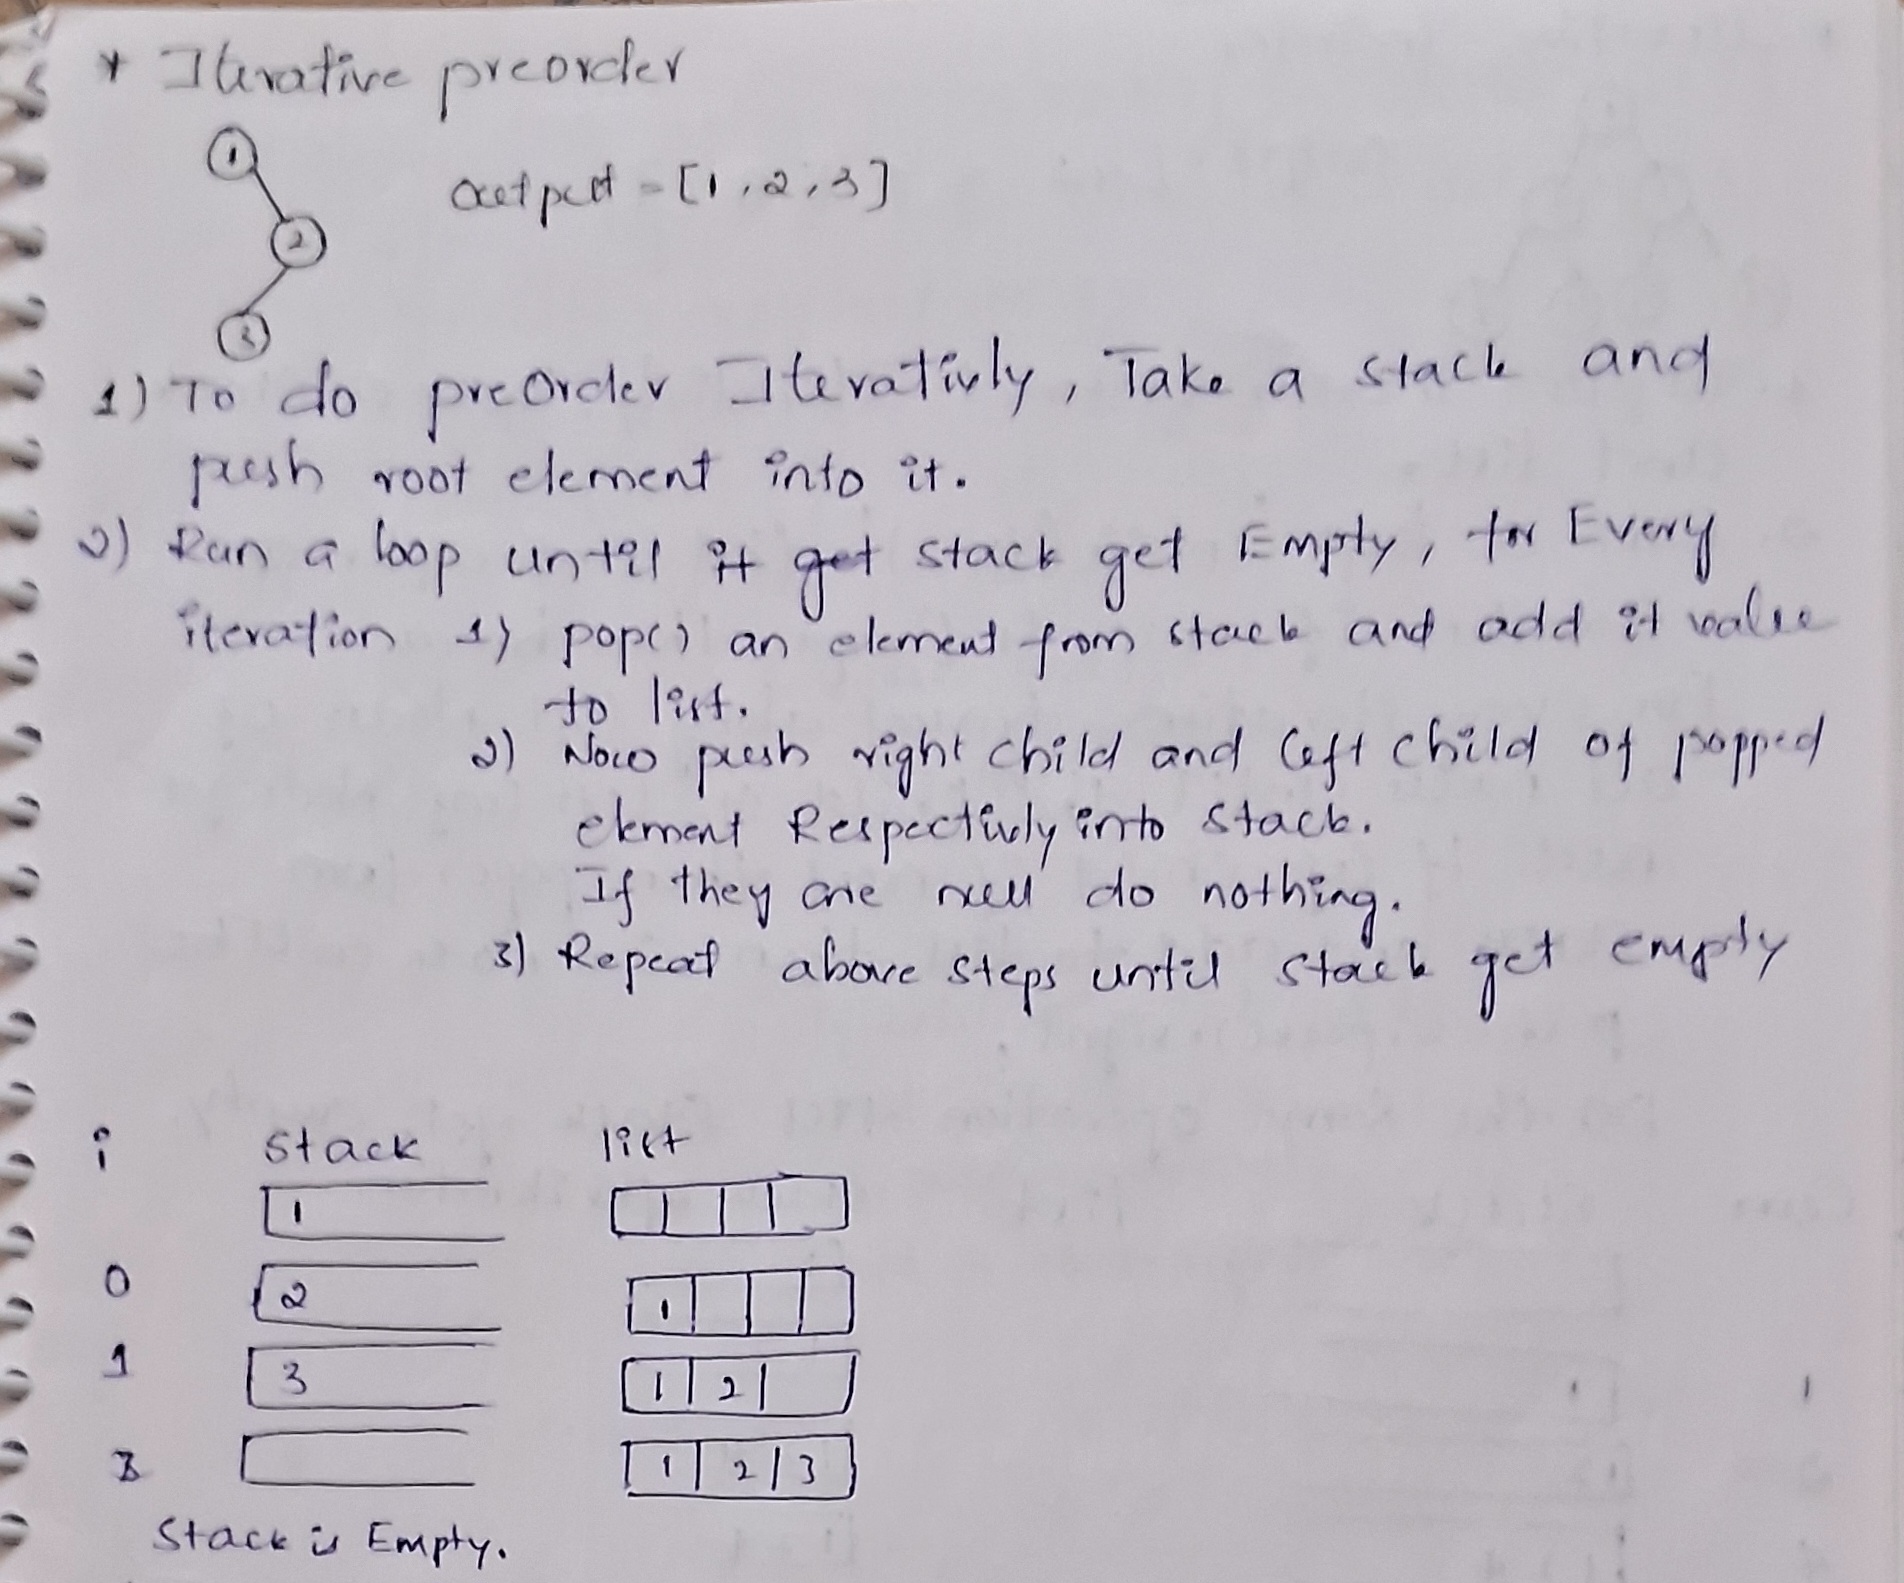 * Iterative preorder
1
output = [1,2,3]
2
3
1) To do preOrder Iterativly, Take a stack and
push root element into it.
2) Run a loop until it get stack get Empty, for Every
iteration 1) pop() an element from stack and add it value
to list.
2) Now push right child and left child of popped
element Respectivly into stack.
If they are null do nothing.
3) Repeat above steps until stack get empty
i stack list
1
0 2 1
1 3 1 2
3 1 2 3
Stack is Empty.